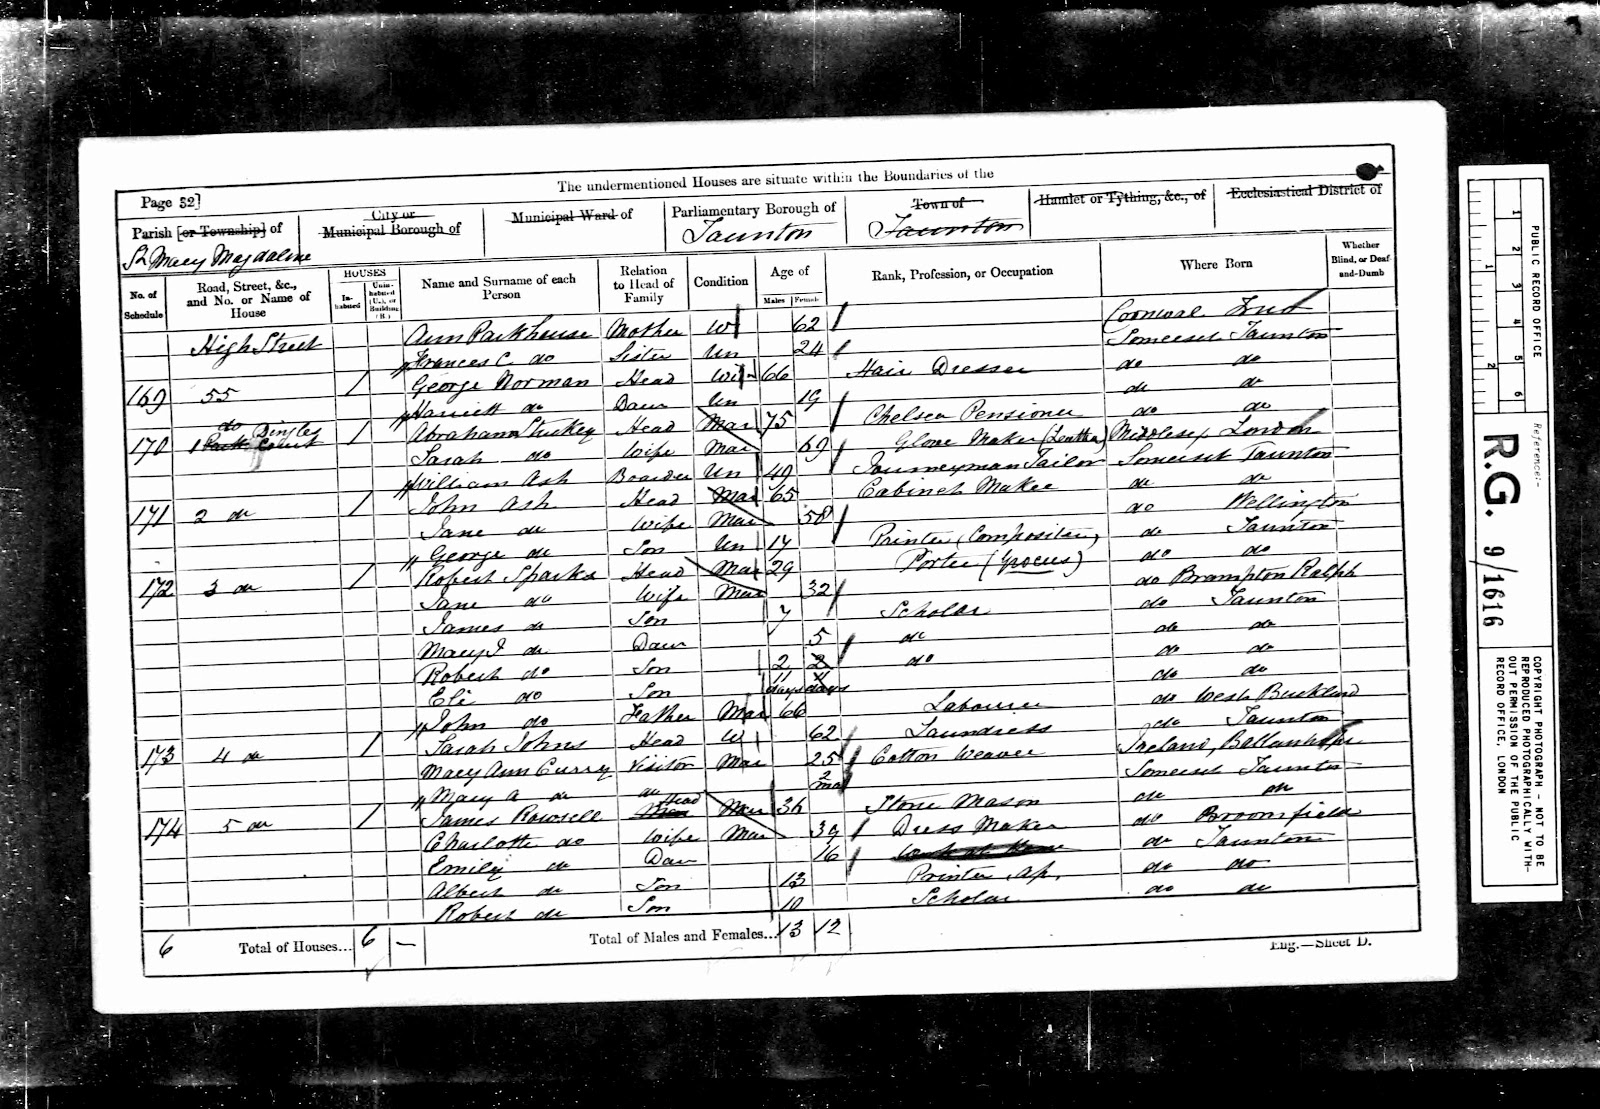 The undermentioned Houses are situate within the Boundaries of the
Page 32]
Parish [or Township] of
St Mary Magdalene
City or
Municipal Borough of
Municipal Ward of
Parliamentary Borough of
Taunton
Town of
Taunton
Hamlet or Tything, &c., of
Ecclesiastical District of
No. of Schedule
Road, Street, &c., and No. or Name of House
HOUSES
In-habited
Unin-habited (U.), or Building (B.)
Name and Surname of each Person
Relation to Head of Family
Condition
Age of
Males
Females
Rank, Profession, or Occupation
Where Born
Whether Blind, or Deaf-and-Dumb
High Street Ann Parkhouse Mother W 62 Cornwal
Frances C. do Sister Un 24 Somerset Taunton
169 55 1 George Norman Head Wid 66 Hair Dresser do do
Harriett do Daur Un 19 do do
170 1 do Dingles Court 1 Abraham Stuckey Head Mar 75 Chelsea Pensioner do do
Sarah do Wife Mar 69 Glove Maker (Leather) Middlesex London
William Ash Boarder Un 49 Journeyman Tailor Somerset Taunton
171 2 do 1 John Ash Head Mar 65 Cabinet Maker do do
Jane do Wife Mar 58 do Wellington
George do Son Un 17 Printer (Compositor) do Taunton
172 3 do 1 Robert Sparks Head Mar 29 Porter (Grocers) do do
Jane do Wife Mar 32 do Brompton Ralph
James do Son 7 Scholar do Taunton
Mary J do Daur 5 do do do
Robert do Son 2 2 do do do
Eli do Son 11 days 11 days do do
John do Father Mar 66 Labourer do West Buckland
173 4 do 1 Sarah Johns Head W 62 Laundress do Taunton
Mary Ann Curry Visitor Mar 25 Cotton Weaver Ireland,
Mary A do do 2 mo Somerset Taunton
174 5 do 1 James Rowsell Head Mar 36 Stone Mason do do
Charlotte do Wife Mar 39 Dress Maker do Broomfield
Emily do Daur 16 do Taunton
Albert do Son 13 Printer, Ap. do do
Robert do Son 10 Scholar do do
6 Total of Houses... 6 — Total of Males and Females... 13 12
Eng.—Sheet D.
1 2 3 4 5 6
1 2
PUBLIC RECORD OFFICE
Reference:-
R.G. 9/1616
COPYRIGHT PHOTOGRAPH - NOT TO BE
REPRODUCED PHOTOGRAPHICALLY WITH-
OUT PERMISSION OF THE PUBLIC
RECORD OFFICE, LONDON